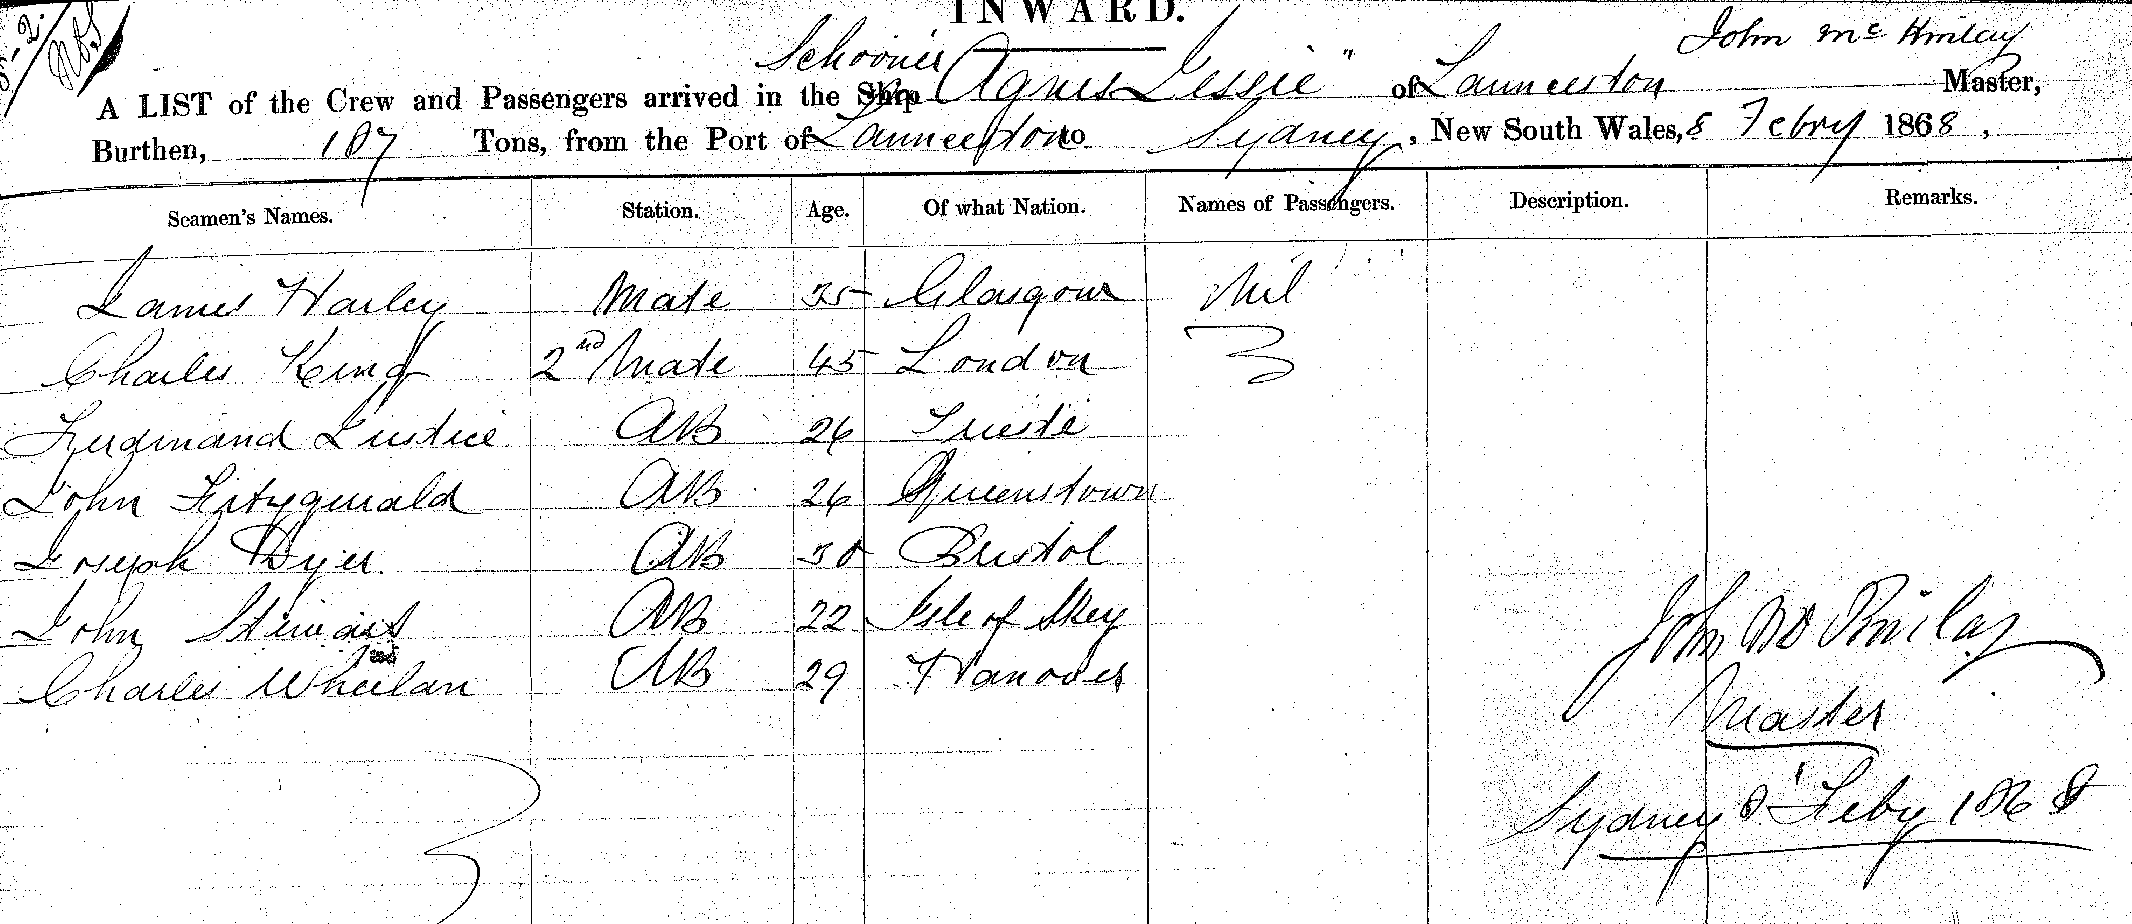 INWARD.
John Mc Kinlay
Schooner
A LIST of the Crew and Passengers arrived in the Ship "Agnes Jessie" of Launceston Master,
Burthen, 107 Tons, from the Port of Launceston to Sydney, New South Wales, 8 Febry 1868,
Seamen's Names. Station. Age. Of what Nation. Names of Passengers. Description. Remarks.
James Harley Mate 35 Glasgow Nil
Charles King 2nd Mate 45 London
Ferdinand Justice AB 26 Trieste
John Fitzgerald AB 26 Queenstown
Joseph Dyer AB 30 Bristol
John Stewart AB 22 Isle of Skey
Charles Wheelan AB 29 Hanover
John McKinlay
Master
Sydney 8 Feby 1868